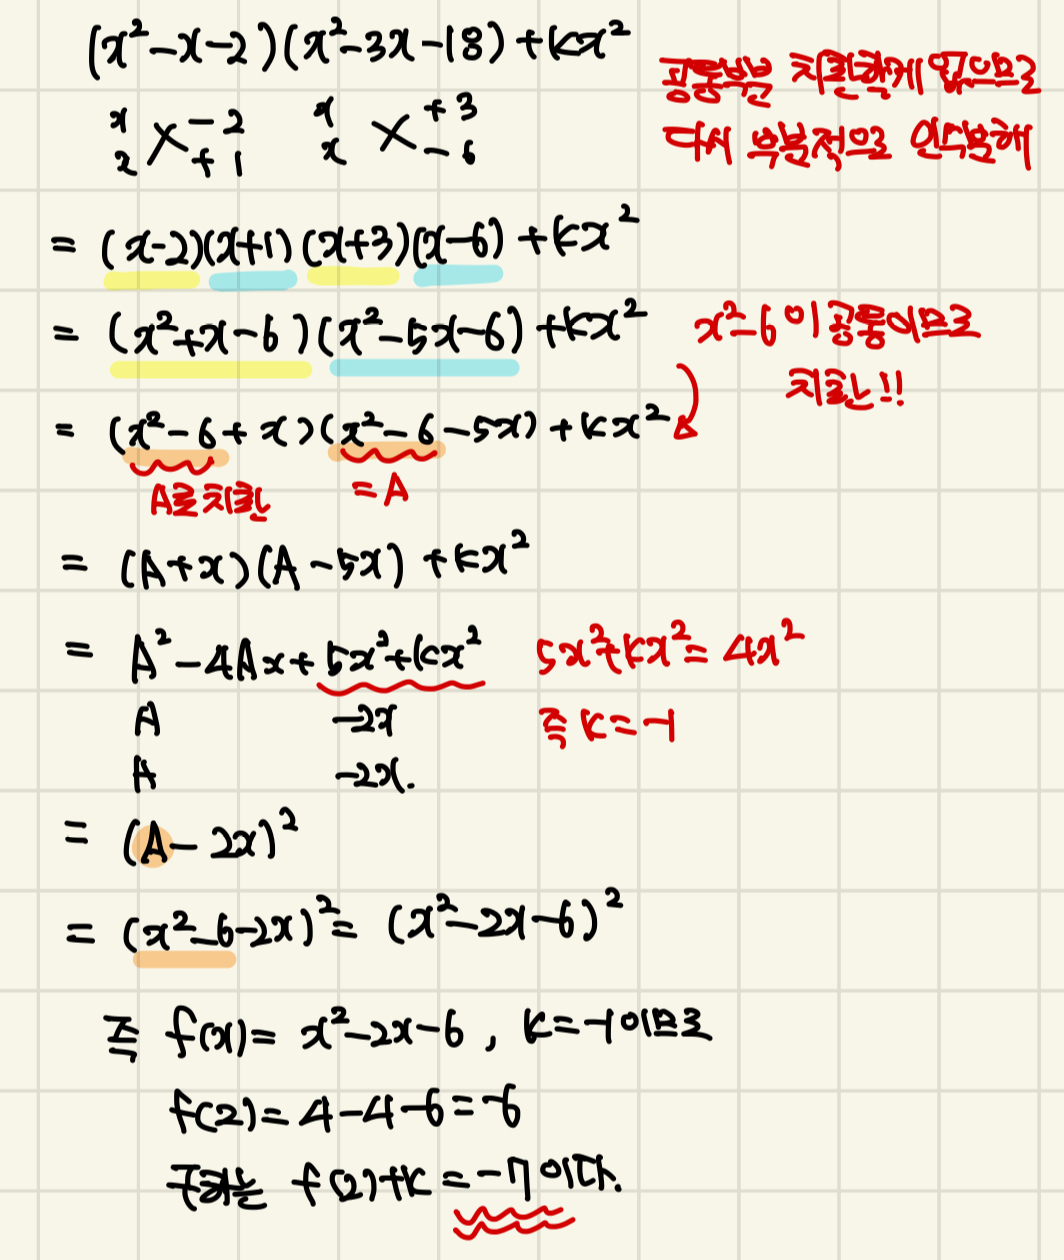 (x²-x-2)(x²-3x-18)+kx²
공통부분 치환할게 없으므로
다시 부분적으로 인수분해
x -2 x +3
2 +1 x -6
= (x-2)(x+1)(x+3)(x-6)+kx²
= (x²+x-6)(x²-5x-6)+kx²
x²-6이 공통이므로
치환!!
= (x²-6+x)(x²-6-5x)+kx²
A로 치환 =A
= (A+x)(A-5x)+kx²
= A²-4Ax+5x²+kx² 5x²+kx²=4x²
A -2x 즉 k=-1
A -2x.
= (A-2x)²
= (x²-6-2x)²= (x²-2x-6)²
즉 f(x)= x²-2x-6, k=-1이므로
f(2)=4-4-6=-6
구하는 f(2)+k=-7이다.